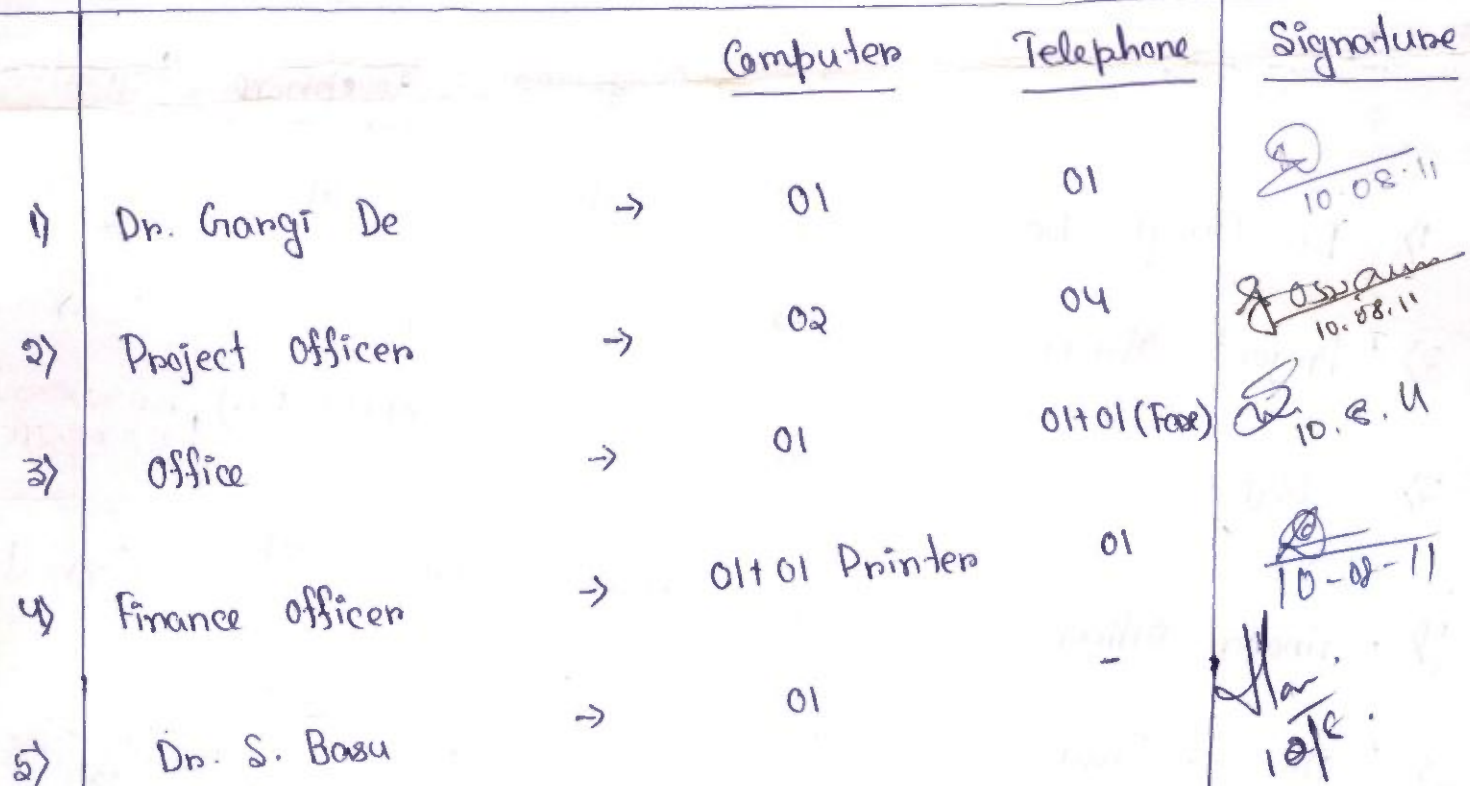 Computer Telephone Signature
1) Dr. Gargi De → 01 01 10.08.11
2) Project Officer → 02 04 Goswami 10.08.11
3) Office → 01 01+01 (Fax) 10.8.11
4) Finance Officer → 01+01 Printer 01 10-08-11
5) Dr. S. Basu → 01 -